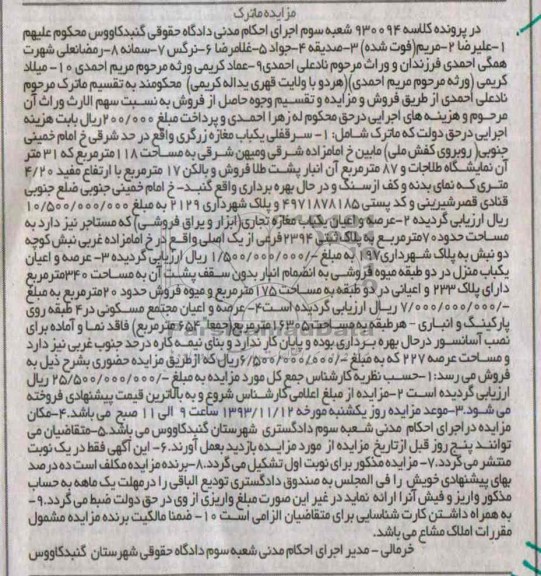 مزایده ماترک
در پرونده کلاسه ۹۳۰۰۹۴ شعبه سوم اجرای احکام مدنی دادگاه حقوقی گنبدکاووس محکوم علیهم
۱-علیرضا ۲-مریم(فوت شده) ۳-صدیقه ۴-جواد ۵-غلامرضا ۶-نرگس ۷-سمانه ۸-رمضانعلی شهرت
همگی احمدی فرزندان و وراث مرحوم نادعلی احمدی۹-عماد کریمی ورثه مرحوم مریم احمدی ۱۰- میلاد
کریمی (ورثه مریم احمدی)(هردو با ولایت قهری یداله کریمی) محکومند به تقسیم ماترک مرحوم
نادعلی احمدی از طریق فروش و مزایده و تقسیم وجوه حاصل از فروش به نسبت سهم الارث وراث آن
مرحوم و هزینه های اجرایی درحق محکوم له زهرا احمدی و پرداخت مبلغ ۲۰۰/۰۰۰ریال بابت هزینه
اجرایی درحق دولت که ماترک شامل: ۱- سرقفلی یکباب مغازه زرگری واقع در حد شرقی خ امام خمینی
جنوبی( روبروی کفش ملی) مابین خ امامزاده شرقی ومیهن شرقی به مساحت ۱۱۸مترمربع که ۳۱ متر
آن نمایشگاه طلاجات و ۸۷ مترمربع آن انبار پشت طلا فروش و بالکن ۱۷ مترمربع با ارتفاع مفید ۴/۲۰
متری که نمای بدنه و کف از سنگ و در حال بهره برداری واقع گنبد- خ امام خمینی جنوبی ضلع جنوبی
قنادی قصرشیرینی و کد پستی ۴۹۷۱۸۷۸۱۸۵ و پلاک شهرداری ۲۱۲۹ به مبلغ ۱۰/۵۰۰/۰۰۰/۰۰۰
ریال ارزیابی گردیده ۲-عرصه و اعیان یکباب مغازه تجاری(ابزار و یراق فروشی) که مستاجر نیز دارد به
مساحت حدود ۷۰مترمربع به پلاک ثبتی ۲۳۹۴فرعی از یک اصلی واقع در خ امامزاده غربی نبش کوچه
دو نبش به پلاک شهرداری۱۹۷ به مبلغ -/۱/۵۰۰/۰۰۰/۰۰۰ ریال ارزیابی گردیده ۳- عرصه و اعیان
یکباب منزل در دو طبقه میوه فروشی به انضمام انبار بدون سقف پشت آن به مساحت ۳۴۰مترمربع
دارای پلاک ۲۳۳ و اعیانی در دو طبقه به مساحت ۱۷۵مترمربع و میوه فروش حدود ۲۰مترمربع به مبلغ
-/۷/۰۰۰/۰۰۰/۰۰۰ ریال ارزیابی گردیده است۴- عرصه و اعیان مجتمع مسکونی در ۴ طبقه روی
پارکینگ و انباری - هرطبقه به مساحت ۱۶۳۰۵مترمربع(جمعا ۶۵۴ مترمربع) فاقد نما و آماده برای
نصب آسانسور درحال بهره برداری بوده و پایان کار ندارد و بنای نیمه کاره درحد جنوب غربی نیز دارد
و مساحت عرصه ۲۲۷ که به مبلغ -/۶/۵۰۰/۰۰۰/۰۰۰ریال که از طریق مزایده حضوری بشرح ذیل به
فروش می رسد:۱-حسب نظریه کارشناس جمع کل مورد مزایده به مبلغ -/۲۵/۵۰۰/۰۰۰/۰۰۰ ریال
ارزیابی گردیده است ۲-مزایده از مبلغ اعلامی کارشناس شروع و به بالاترین قیمت پیشنهادی فروخته
می شود.۳-موعد مزایده روز یکشنبه مورخه ۱۳۹۳/۱۱/۱۲ ساعت ۹ الی ۱۱ صبح می باشد.۴-مکان
مزایده دراجرای احکام مدنی شعبه سوم دادگستری شهرستان گنبدکاووس می باشد.۵-متقاضیان می
توانند پنج روز قبل ازتاریخ مزایده از مورد مزایده بازدید بعمل آورند.۶- این آگهی فقط در یک نوبت
منتشر می گردد.۷- مزایده مذکور برای نوبت اول تشکیل می گردد.۸-برنده مزایده مکلف است ده در صد
بهای پیشنهادی خویش را فی المجلس به صندوق دادگستری تودیع الباقی را درمهلت یک ماهه به حساب
مذکور واریز و فیش آنرا ارائه نماید در غیر این صورت مبلغ واریزی از وی در حق دولت ضبط می گردد.۹-
به همراه داشتن کارت شناسایی برای متقاضیان الزامی است ۱۰- ضمنا مالکیت برنده مزایده مشمول
مقررات املاک مشاع می باشد.
خرمالی - مدیر اجرای احکام مدنی شعبه سوم دادگاه حقوقی شهرستان گنبدکاووس